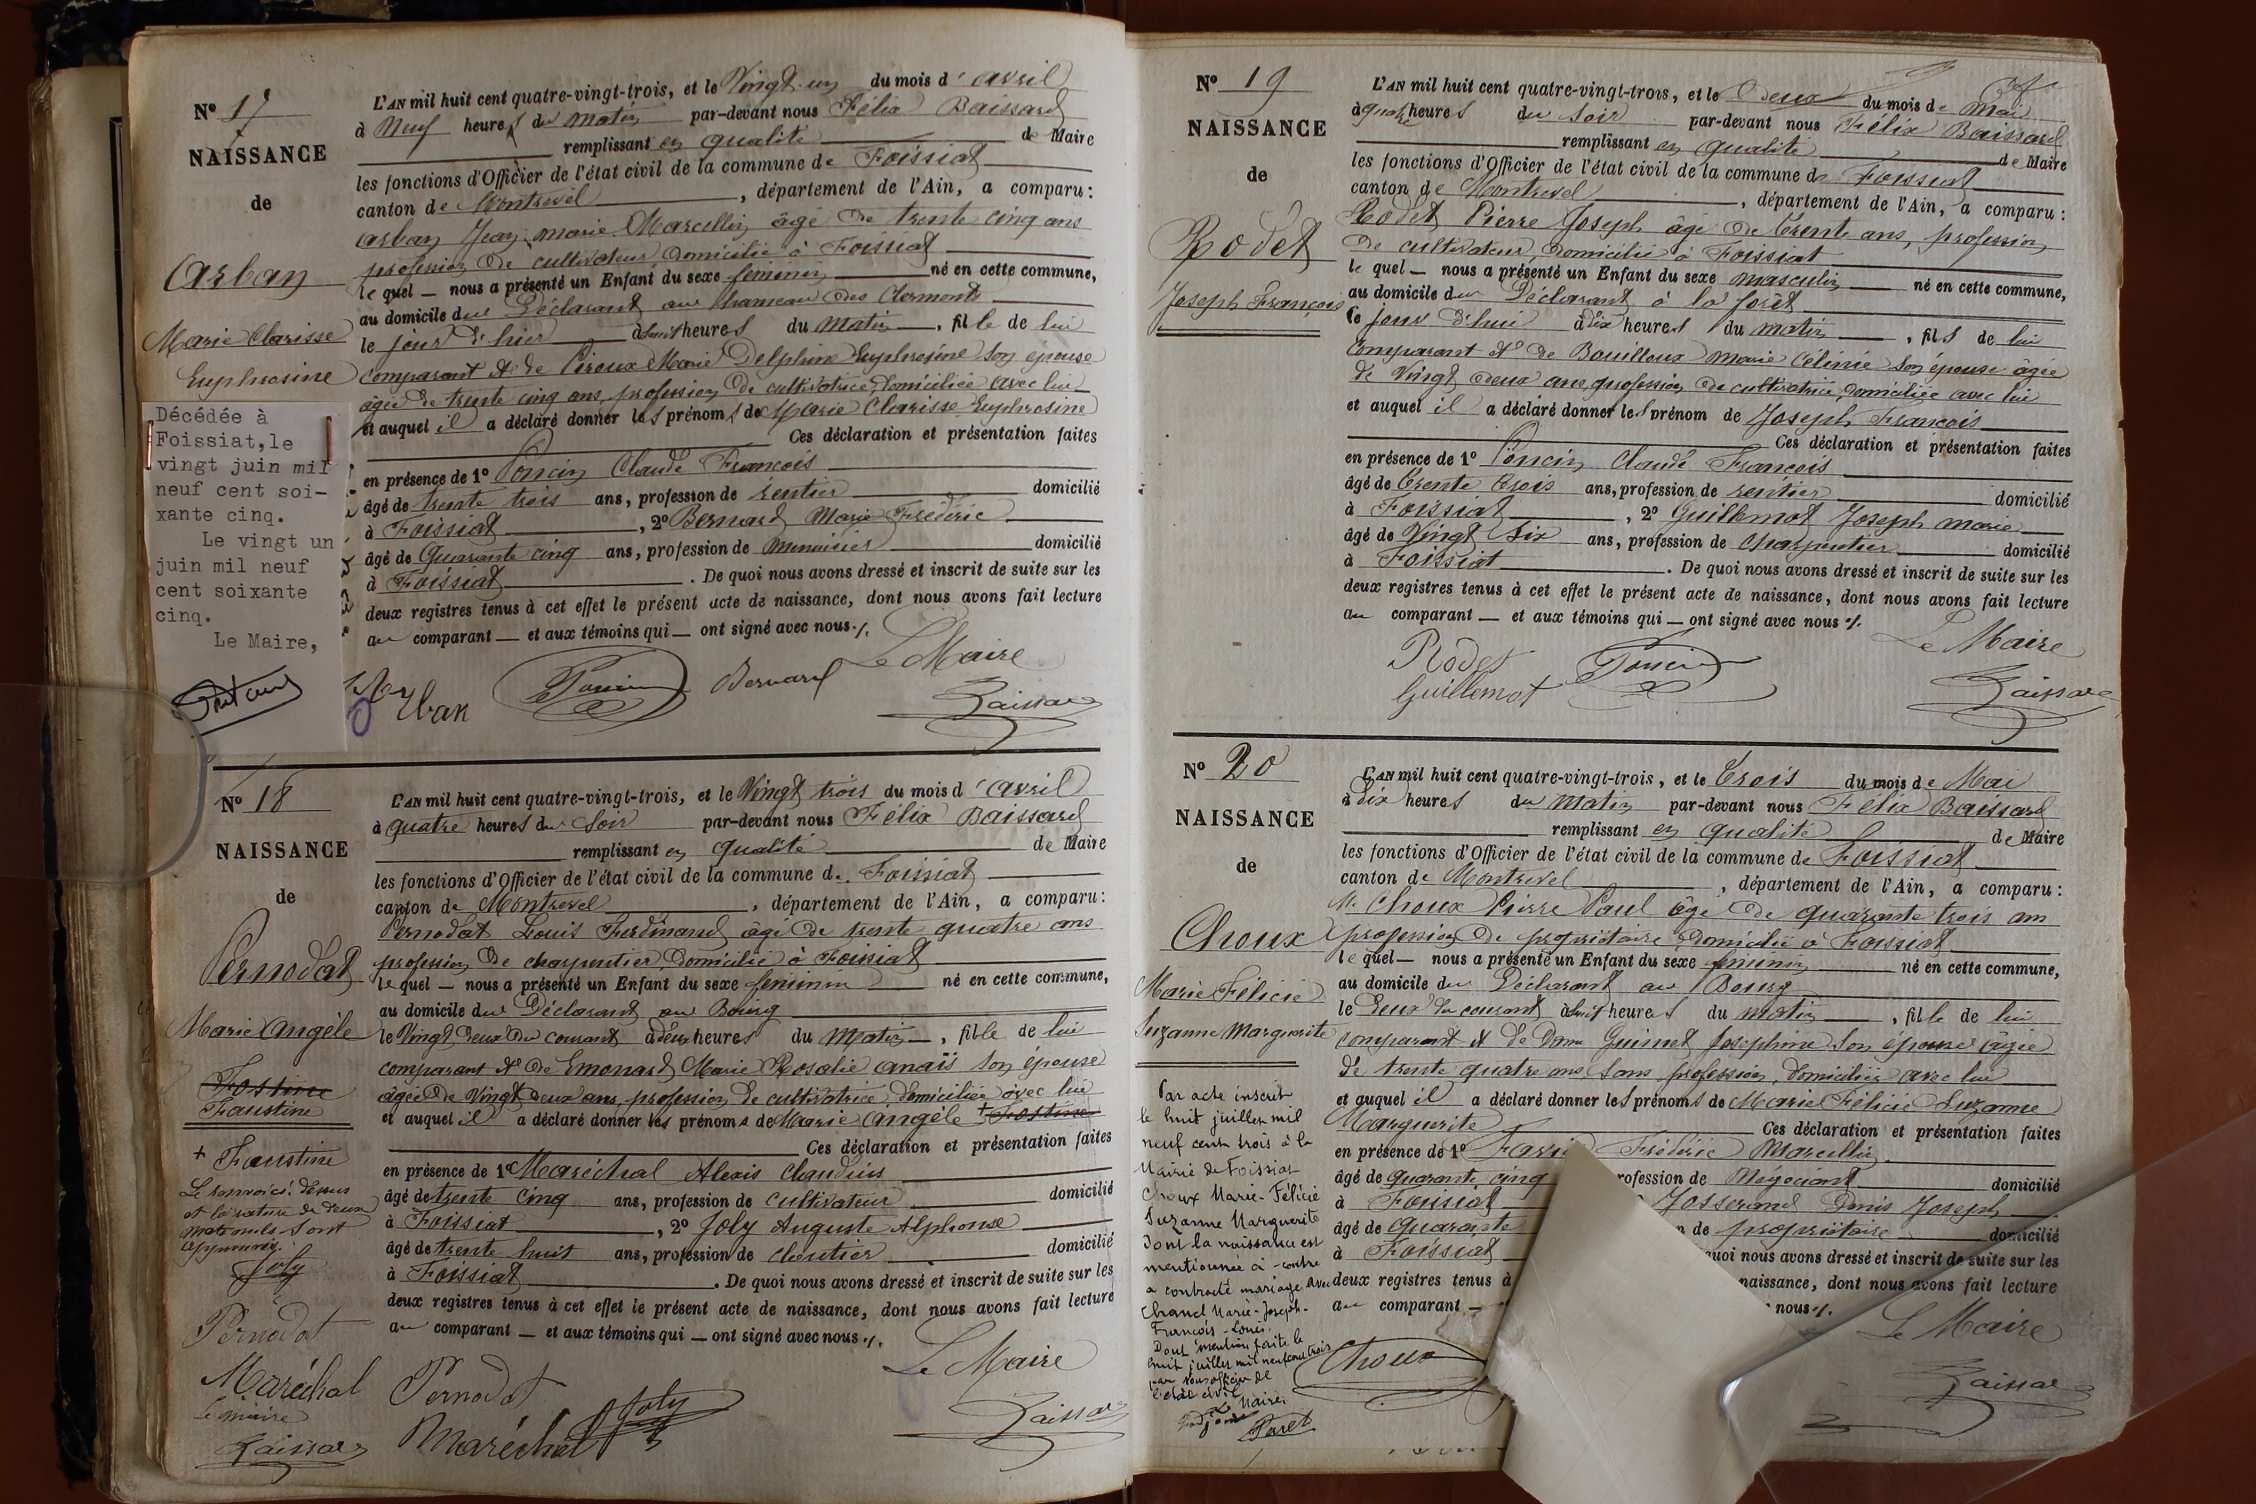 N° 17
NAISSANCE
de
Arban
Marie Clarisse
Euphrosine
Décédée à
Foissiat, le
vingt juin mil
neuf cent soi-
xante cinq.
Le vingt un
juin mil neuf
cent soixante
cinq.
Le Maire,
L'AN mil huit cent quatre-vingt-trois, et le Vingt un du mois d'avril
à Neuf heures du matin par-devant nous Félix Baissard
remplissant en qualité de Maire
les fonctions d'Officier de l'état civil de la commune de Foissiat
canton de Montrevel, département de l'Ain, a comparu:
Arban Jean marie Marcellin âgé de trente cinq ans
profession de cultivateur domicilié à Foissiat
lequel — nous a présenté un Enfant du sexe féminin né en cette commune,
au domicile du Déclarant au hameau des Clermonts
le jour d'hier à huit heures du matin, fille de lui
comparant et de Ciroux Marie Delphine Euphrosine son épouse
âgée de trente cinq ans, profession de cultivatrice, domiciliée avec lui
et auquel il a déclaré donner les prénoms de Marie Clarisse Euphrosine
Ces déclaration et présentation faites
en présence de 1° Poncin Claude François
âgé de trente trois ans, profession de rentier domicilié
à Foissiat, 2° Bernard Marie Frédéric
âgé de Quarante cinq ans, profession de Menuisier domicilié
à Foissiat. De quoi nous avons dressé et inscrit de suite sur les
deux registres tenus à cet effet le présent acte de naissance, dont nous avons fait lecture
au comparant — et aux témoins qui — ont signé avec nous ./.
Le Maire
Arban Poncin Bernard Baissard
N° 18
NAISSANCE
de
Pernodat
Marie Angèle
Fostine
Faustine
+ Faustine
Le renvoi ci-dessus
et la rature de deux
mots nuls sont
approuvés.
Joly
Pernodat
Maréchal
Le maire
Baissard
L'AN mil huit cent quatre-vingt-trois, et le Vingt trois du mois d'avril
à quatre heures du soir par-devant nous Félix Baissard
remplissant en qualité de Maire
les fonctions d'Officier de l'état civil de la commune de Foissiat
canton de Montrevel, département de l'Ain, a comparu:
Pernodat Louis Ferdinand âgé de trente quatre ans
profession de charpentier, domicilié à Foissiat
lequel — nous a présenté un Enfant du sexe féminin né en cette commune,
au domicile du Déclarant au Bourg
le Vingt deux du courant à deux heures du matin, fille de lui
comparant et de Emonard Marie Rosalie anaïs son épouse
âgée de Vingt deux ans, profession de cultivatrice, domiciliée avec lui
et auquel il a déclaré donner les prénoms de Marie Angèle + Fostine
Ces déclaration et présentation faites
en présence de 1° Maréchal Alexis Claudius
âgé de trente cinq ans, profession de cultivateur domicilié
à Foissiat, 2° Joly Auguste Alphonse
âgé de trente huit ans, profession de cloutier domicilié
à Foissiat. De quoi nous avons dressé et inscrit de suite sur les
deux registres tenus à cet effet le présent acte de naissance, dont nous avons fait lecture
au comparant — et aux témoins qui — ont signé avec nous ./.
Le Maire
Pernodat Joly
Maréchal Baissard
N° 19
NAISSANCE
de
Rodet
Joseph François
L'AN mil huit cent quatre-vingt-trois, et le Deux du mois de Mai
à quatre heures du soir par-devant nous Félix Baissard
remplissant en qualité de Maire
les fonctions d'Officier de l'état civil de la commune de Foissiat
canton de Montrevel, département de l'Ain, a comparu:
Rodet Pierre Joseph âgé de trente ans, profession
de cultivateur, domicilié à Foissiat
lequel — nous a présenté un Enfant du sexe masculin né en cette commune,
au domicile du Déclarant à la forêt
le jour d'hui à dix heures du matin, fils de lui
comparant et de Bouilloux marie Célinie son épouse âgée
de Vingt deux ans, profession de cultivatrice, domiciliée avec lui
et auquel il a déclaré donner les prénom de Joseph François
Ces déclaration et présentation faites
en présence de 1° Poncin Claude François
âgé de trente trois ans, profession de rentier domicilié
à Foissiat, 2° Guillemot Joseph marie
âgé de Vingt six ans, profession de charpentier domicilié
à Foissiat. De quoi nous avons dressé et inscrit de suite sur les
deux registres tenus à cet effet le présent acte de naissance, dont nous avons fait lecture
au comparant — et aux témoins qui — ont signé avec nous ./.
Le Maire
Rodet Poncin
Guillemot Baissard
N° 20
NAISSANCE
de
Choux
Marie Félicie
Suzanne Marguerite
Par acte inscrit
le huit juillet mil
neuf cent trois à la
Mairie de Foissiat
Choux Marie-Félicie
Suzanne Marguerite
dont la naissance est
mentionnée ci-contre
a contracté mariage avec
Chanel Marie-Joseph-
François-Louis.
Dont mention faite le
huit juillet mil neuf cent trois
par nous officier de
l'état civil
Le Maire
L'AN mil huit cent quatre-vingt-trois, et le Trois du mois de Mai
à dix heures du matin par-devant nous Félix Baissard
remplissant en qualité de Maire
les fonctions d'Officier de l'état civil de la commune de Foissiat
canton de Montrevel, département de l'Ain, a comparu:
Mr Choux Pierre Paul âgé de quarante trois ans
profession de propriétaire, domicilié à Foissiat
lequel — nous a présenté un Enfant du sexe féminin né en cette commune,
au domicile du Déclarant au Bourg
le Deux du courant à huit heures du matin, fille de lui
comparant et de Dame Guisnet Josephine son épouse âgée
de trente quatre ans, sans profession, domiciliée avec lui
et auquel il a déclaré donner les prénoms de Marie Félicie Suzanne
Marguerite Ces déclaration et présentation faites
en présence de 1° Frédéric Marcellin
âgé de quarante cinq rofession de Négociant domicilié
à Foissiat Josserand Denis Joseph
âgé de quarante n de propriétaire domicilié
à Foissiat quoi nous avons dressé et inscrit de suite sur les
deux registres tenus à naissance, dont nous avons fait lecture
au comparant — nous ./.
Le Maire
Choux Baissard